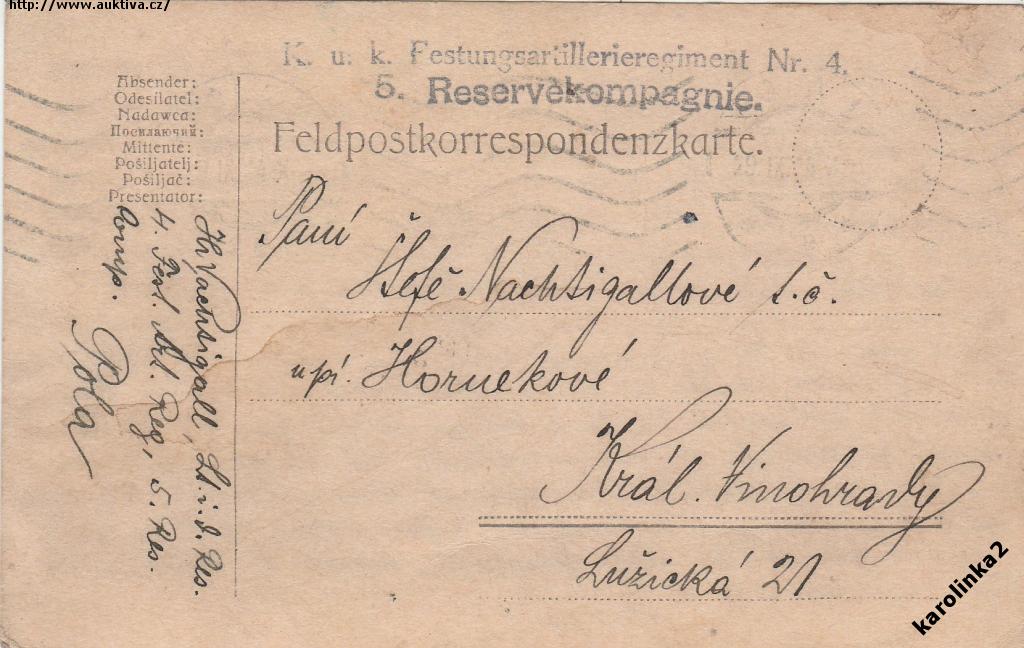 http://www.auktiva.cz/
K. u. k. Festungsartillerieregiment Nr. 4.
5. Reservekompagnie.
Feldpostkorrespondenzkarte.
Absender:
Odesílatel:
Nadawca:
Посилаючий:
Mittente:
Pošiljatelj:
Pošiljač:
Presentator:
Nachtigall, Lt. i. d. Res.
4. Fest. Art. Reg, 5. Res.
Comp.
Pola
Paní
Štefě Nachtigallové t. č.
u pí. Hornekové
Král. Vinohrady
Lužická 21
karolinka2